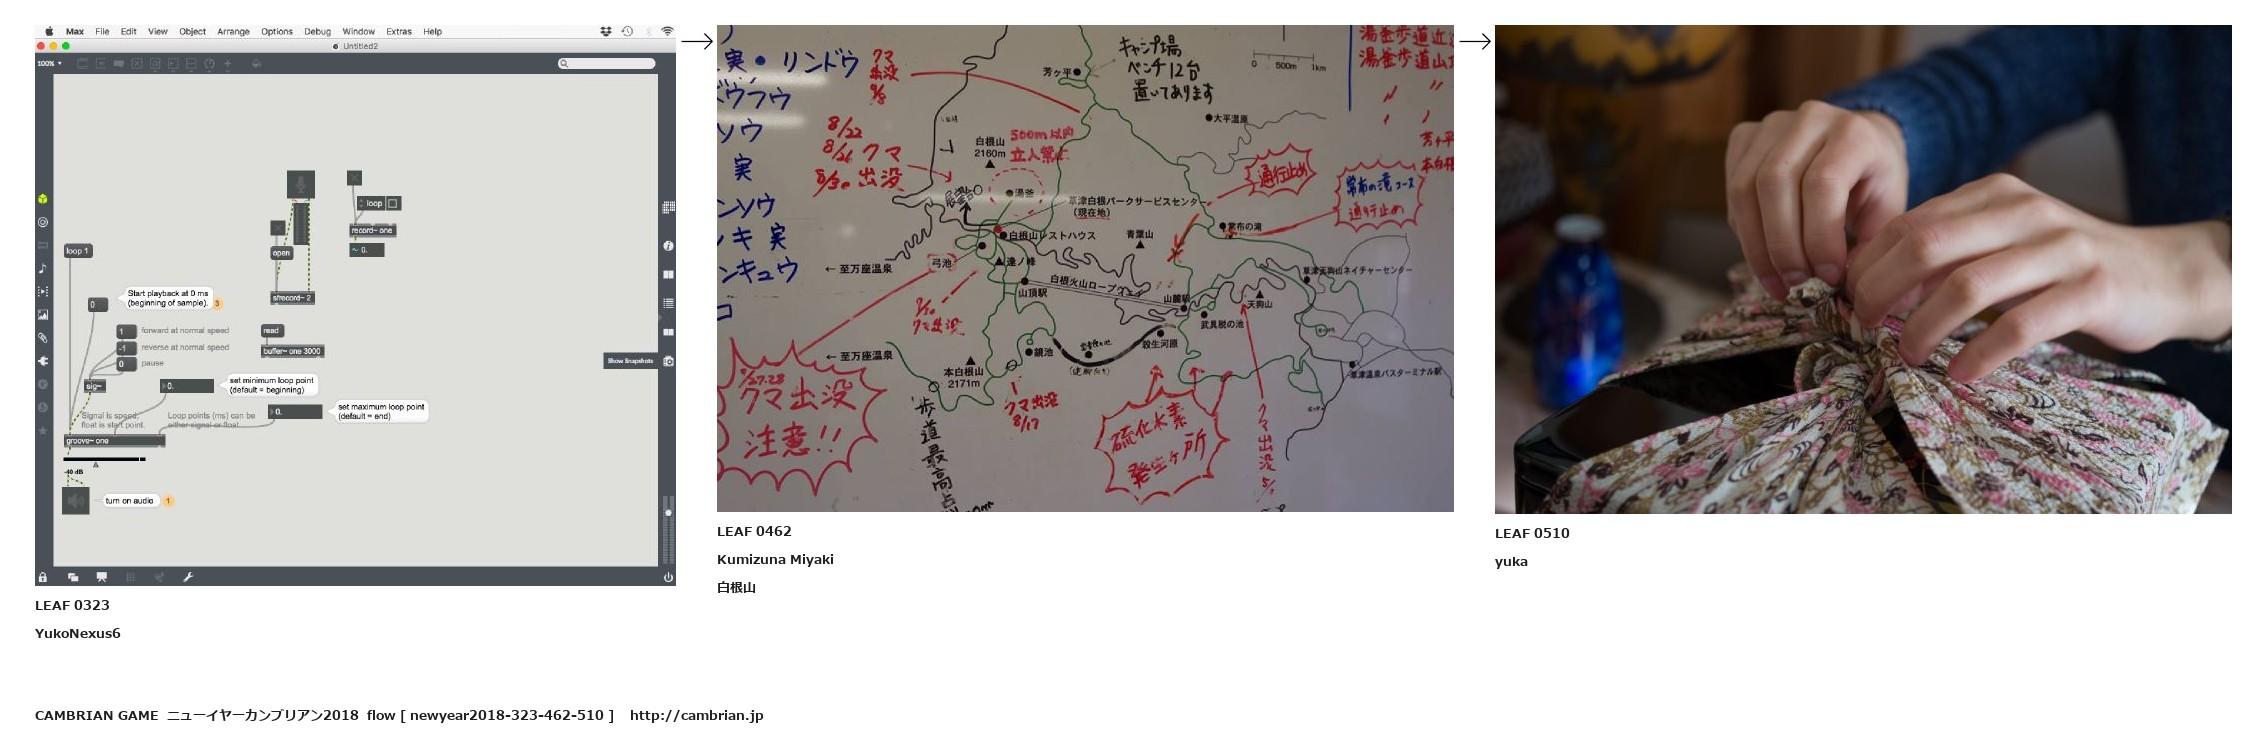 Max File Edit View Object Arrange Options Debug Window Extras Help
Untitled2
100%
loop 1
0
Start playback at 0 ms
(beginning of sample).
3
1
forward at normal speed
-1
reverse at normal speed
0
pause
sig~
Signal is speed;
float is start point.
Loop points (ms) can be
either signal or float
groove~ one
-40 dB
turn on audio
1
0.
set minimum loop point
(default = beginning)
0.
set maximum loop point
(default = end)
read
buffer~ one 3000
open
sfrecord~ 2
loop
record~ one
0.
Show Snapshots
LEAF 0323
YukoNexus6
実・リンドウ
ソウ
実
ンソウ
ンキュウ
コ
クマ
出没
キャンプ場
ベンチ12台
置いてあります
芳ヶ平
0 500m 1km
湯釜歩道
湯釜歩道
大平湿原
白根山
2160m
500m以内
立入禁止
8/22
8/21 クマ
8/30 出没
湯釜
草津白根パークサービスセンター
(現在地)
白根山レストハウス
弓池
逢ノ峰
青葉山
常布の滝
通行止め
常布の滝コース
通行止め
← 至万座温泉
山頂駅
白根火山ロープウェイ
山麓駅
天狗山
草津天狗山ネイチャーセンター
武具脱の池
殺生河原
鏡池
← 至万座温泉
本白根山
2171m
草津温泉バスターミナル駅
クマ出没
クマ出没
注意!!
クマ出没
8/17
歩道最高点
硫化水素
発生ヶ所
クマ出没
LEAF 0462
Kumizuna Miyaki
白根山
LEAF 0510
yuka
CAMBRIAN GAME ニューイヤーカンブリアン2018 flow [ newyear2018-323-462-510 ] http://cambrian.jp